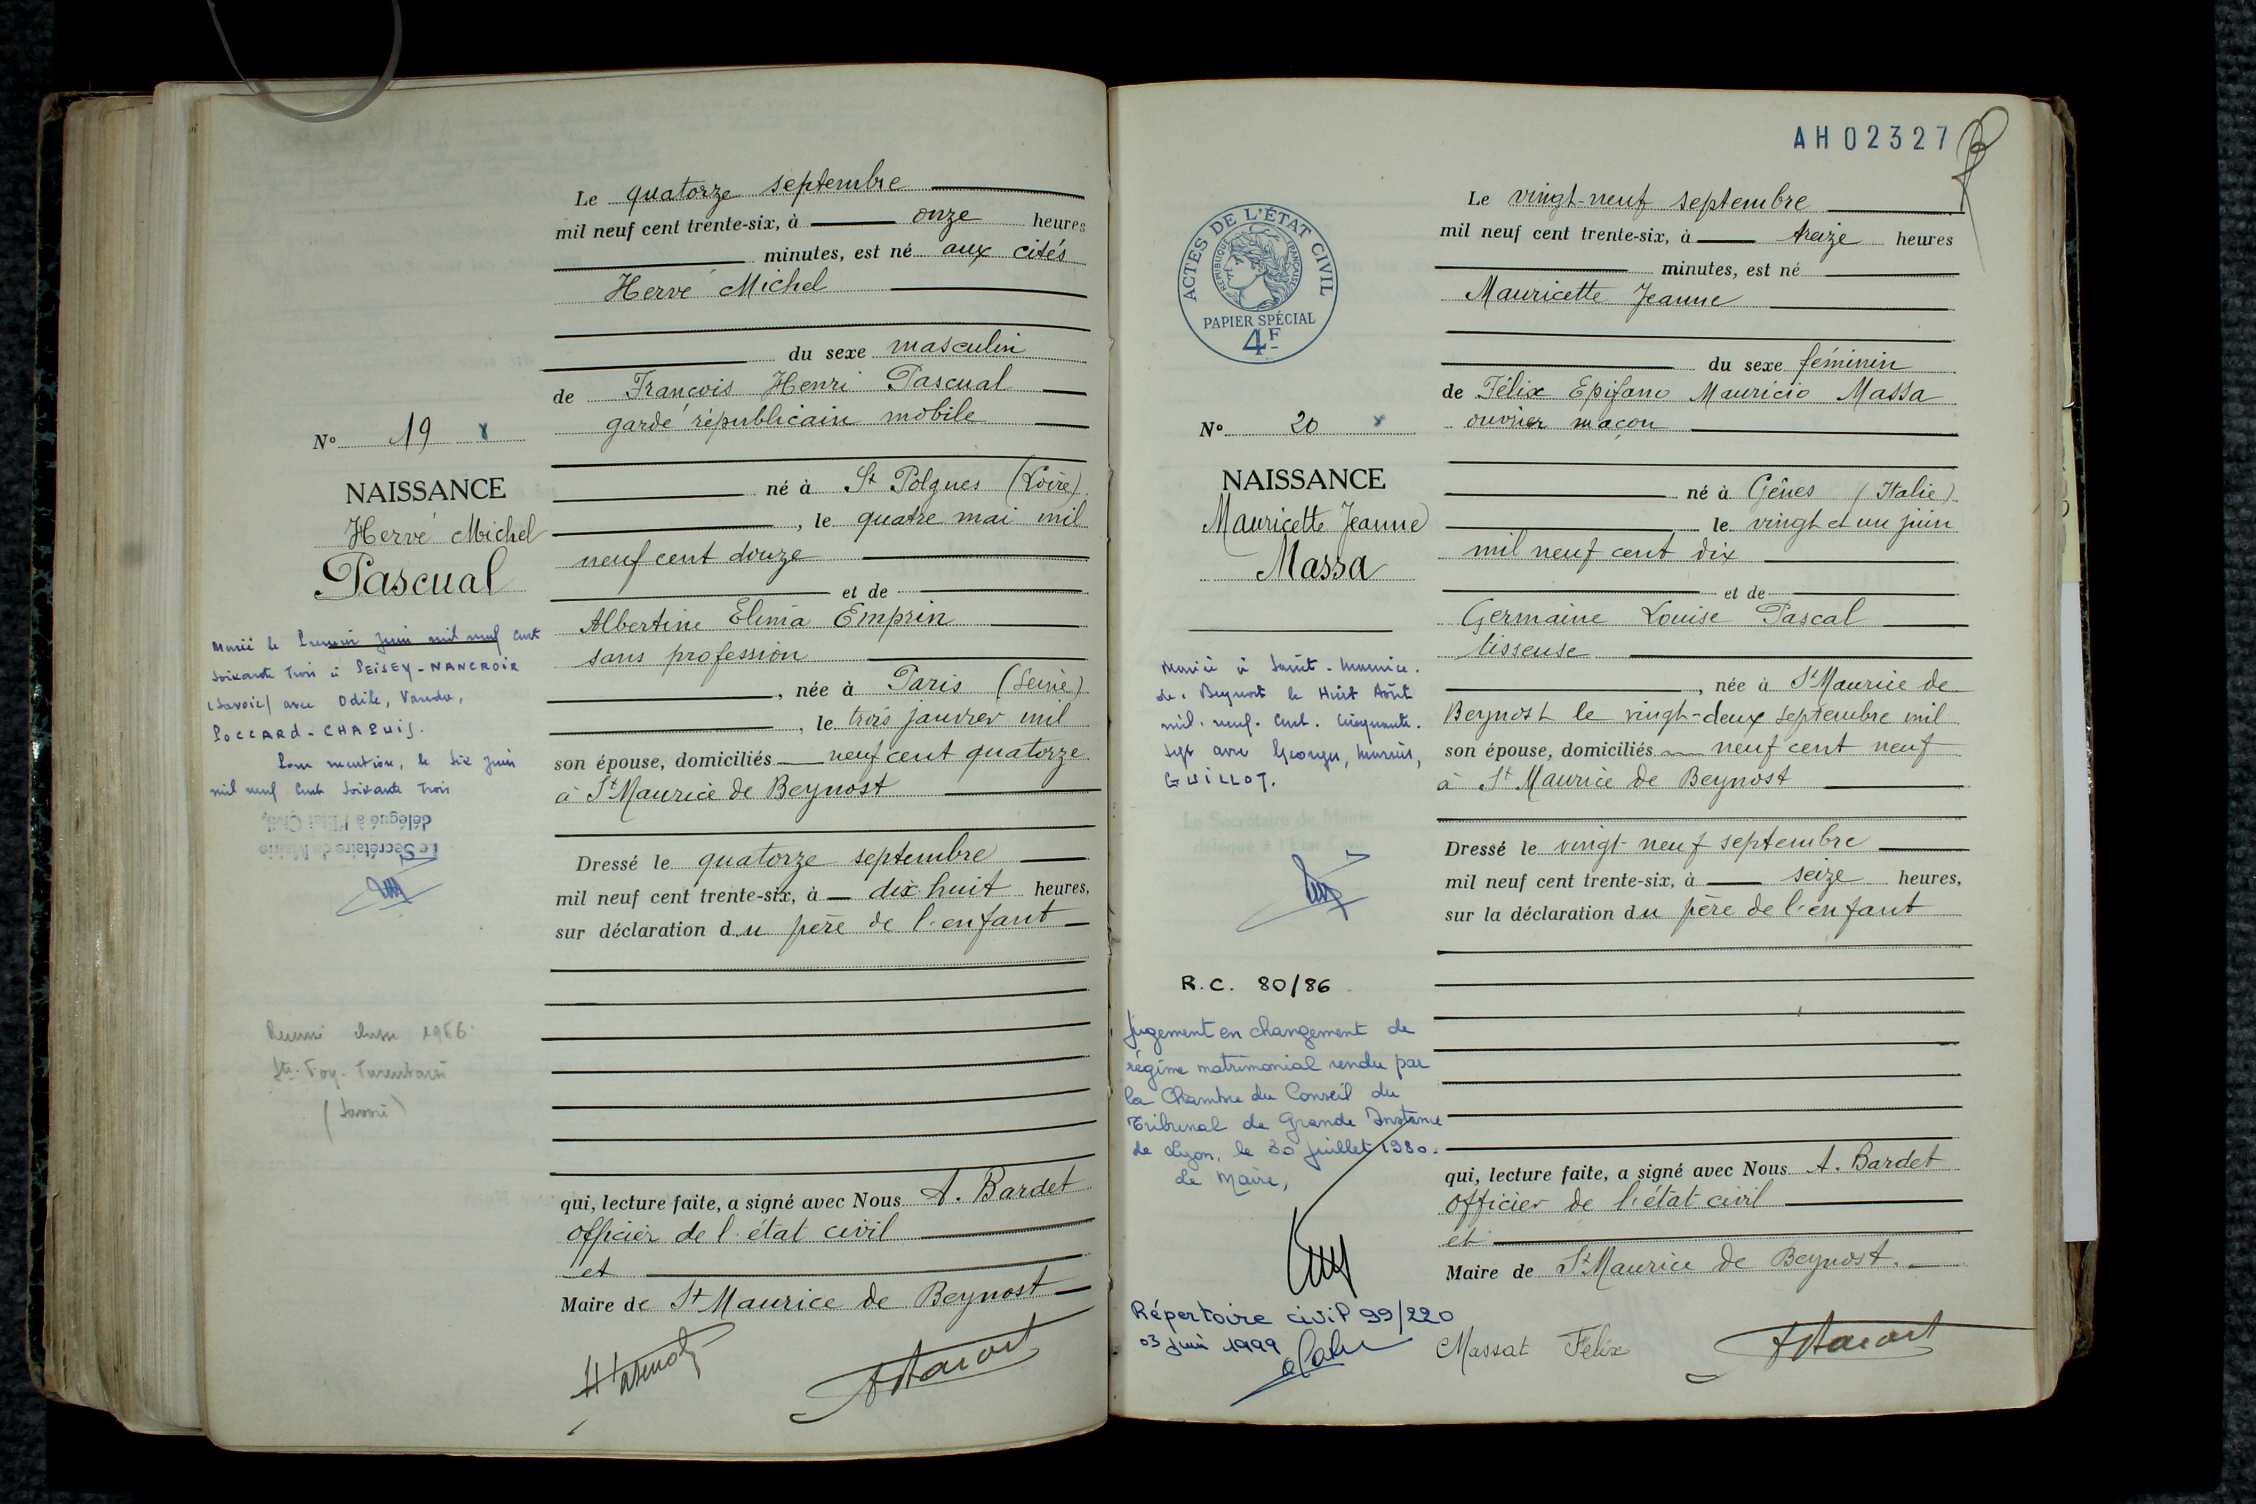 Le quatorze septembre
mil neuf cent trente-six, à onze heures
minutes, est né aux cités
Hervé Michel
du sexe masculin
de François Henri Pascual
garde républicain mobile
né à St Polgues (Loire)
, le quatre mai mil
neuf cent douze
et de
Albertine Elima Emprin
sans profession
, née à Paris (Seine)
, le trois janvier mil
son épouse, domiciliés neuf cent quatorze
à St Maurice de Beynost
Dressé le quatorze septembre
mil neuf cent trente-six, à dix huit heures,
sur déclaration du père de l'enfant
qui, lecture faite, a signé avec Nous A. Bardet
officier de l'état civil
et
Maire de St Maurice de Beynost
No 19
NAISSANCE
Hervé Michel
Pascual
Marié le Premier juin mil neuf cent
soixante trois à PEISEY-NANCROIX
(Savoie) avec Odile, Vanda,
POCCARD-CHAPUIS.
Pour mention, le six juin
mil neuf cent soixante trois
Le Secrétaire de Mairie
délégué à l'Etat Civil,
classe 1956
Ste-Foy-Tarentaise
(Savoie)
AH02327
Le vingt-neuf septembre
mil neuf cent trente-six, à treize heures
minutes, est né
Mauricette Jeanne
du sexe féminin
de Félix Epifano Mauricio Massa
ouvrier maçon
né à Gênes (Italie)
le vingt et un juin
mil neuf cent dix
et de
Germaine Louise Pascal
tisseuse
, née à St Maurice de
Beynost le vingt-deux septembre mil
son épouse, domiciliés neuf cent neuf
à St Maurice de Beynost
Dressé le vingt-neuf septembre
mil neuf cent trente-six, à seize heures,
sur la déclaration du père de l'enfant
qui, lecture faite, a signé avec Nous A. Bardet
officier de l'état civil
et
Maire de St Maurice de Beynost.
Massat Félix
ACTES DE L'ÉTAT CIVIL
RÉPUBLIQUE FRANÇAISE
PAPIER SPÉCIAL
4F
No 20
NAISSANCE
Mauricette Jeanne
Massa
Mariée à Saint-Maurice-
de-Beynost le Huit Août
mil-neuf-cent-cinquante-
sept avec Georges, Marius,
GUILLOT.
Le Secrétaire de Mairie
délégué à l'Etat
R.C. 80/86
Jugement en changement de
régime matrimonial rendu par
la Chambre du Conseil du
Tribunal de Grande Instance
de Lyon, le 30 juillet 1980.
Le Maire,
Répertoire civil 99/220
03 juin 1999